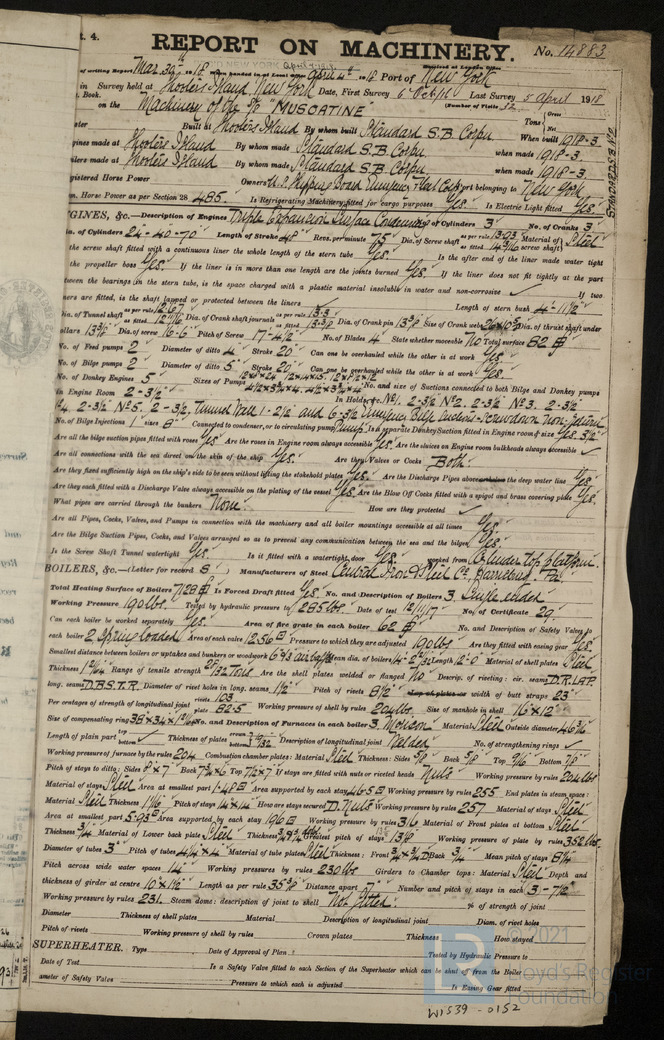 t. 4.
REPORT ON MACHINERY. No. 14883
of writing Report Mar. 30th 1918 When handed in at Local Office April 4th 1918 Port of New York
in Survey held at Shooters Island New York Date, First Survey 6 Oct Last Survey 5 April 1918
Book.
on the Machinery of the S/S "MUSCATINE" (Number of Visits 52
Gross
Tons
Net
Built at Shooters Island By whom built Standard S.B. Corpn When built 1918-3
ngines made at Shooters Island By whom made Standard S.B. Corpn when made 1918-3
oilers made at Shooters Island By whom made Standard S.B. Corpn when made 1918-3
egistered Horse Power Owners U.S. Shipping Board Emergency Fleet Corp Port belonging to New York
om. Horse Power as per Section 28 485. Is Refrigerating Machinery fitted for cargo purposes Yes Is Electric Light fitted Yes
STANDARD S.B. No 2
NGINES, &c.—Description of Engines Triple Expansion Surface Condensing No. of Cylinders 3 No. of Cranks 3
ia. of Cylinders 24-40-70 Length of Stroke 48 Revs. per minute 75 Dia. of Screw shaft as per rule 13.93 as fitted 14 3/16 Material of screw shaft Steel
the screw shaft fitted with a continuous liner the whole length of the stern tube Yes. Is the after end of the liner made water tight
the propeller boss Yes. If the liner is in more than one length are the joints burned Yes. If the liner does not fit tightly at the part
tween the bearings in the stern tube, is the space charged with a plastic material insoluble in water and non-corrosive ✓ If two
ners are fitted, is the shaft lapped or protected between the liners ✓ Length of stern bush 4'-11 1/2"
Dia. of Tunnel shaft as per rule 12.67 as fitted 12 11/16 Dia. of Crank shaft journals as per rule 13.3 as fitted 13 3/8 Dia. of Crank pin 13 3/8 Size of Crank webs Dia. of thrust shaft under
ollars 13 3/8 Dia. of screw 16-6 Pitch of Screw 17-4 1/2 No. of Blades 4 State whether moveable No Total surface 82
No. of Feed pumps 2 Diameter of ditto 4 Stroke 20" Can one be overhauled while the other is at work Yes.
No. of Bilge pumps 2 Diameter of ditto 5 Stroke 20" Can one be overhauled while the other is at work Yes.
No. of Donkey Engines 5 Sizes of Pumps No. and size of Suctions connected to both Bilge and Donkey pumps
in Engine Room 2-3 1/2" In Holds, &c. No 1. 2-3 1/2 No 2. 2-3 1/2 No 3. 2-3 1/2
No 4. 2-3 1/2 No 5. 2-3 1/2, Tunnel Well 1-2 1/2 and
No. of Bilge Injections 1 sizes 8" Connected to condenser, or to circulating pump Pump. Is a separate Donkey Suction fitted in Engine room & size Yes. 3 1/2"
Are all the bilge suction pipes fitted with roses Yes Are the roses in Engine room always accessible Yes. Are the sluices on Engine room bulkheads always accessible ✓
Are all connections with the sea direct on the skin of the ship Yes. Are they Valves or Cocks Both.
Are they fixed sufficiently high on the ship's side to be seen without lifting the stokehold plates Yes. Are the Discharge Pipes above the deep water line Yes.
Are they each fitted with a Discharge Valve always accessible on the plating of the vessel Yes. Are the Blow Off Cocks fitted with a spigot and brass covering plate Yes.
What pipes are carried through the bunkers None. How are they protected ✓
Are all Pipes, Cocks, Valves, and Pumps in connection with the machinery and all boiler mountings accessible at all times Yes.
Are the Bilge Suction Pipes, Cocks, and Valves arranged so as to prevent any communication between the sea and the bilges Yes.
Is the Screw Shaft Tunnel watertight Yes. Is it fitted with a watertight door Yes. worked from Cylinder top platform.
BOILERS, &c.—(Letter for record S) Manufacturers of Steel Central Iron & Steel Co. Harrisburg, Pa.
Total Heating Surface of Boilers 7128 Is Forced Draft fitted Yes. No. and Description of Boilers 3. Single ended
Working Pressure 190 lbs. Tested by hydraulic pressure to 285 lbs. Date of test 12/11/17 No. of Certificate 29.
Can each boiler be worked separately Yes. Area of fire grate in each boiler 62 No. and Description of Safety Valves to
each boiler 2 Spring loaded Area of each valve 12.56 Pressure to which they are adjusted 190 lbs Are they fitted with easing gear Yes.
Smallest distance between boilers or uptakes and bunkers or woodwork Mean dia. of boilers Length 12-0" Material of shell plates Steel
Thickness Range of tensile strength 28/32 Tons. Are the shell plates welded or flanged No Descrip. of riveting: cir. seams D.R. LAP.
long. seams D.B.S.T.R. Diameter of rivet holes in long. seams 1 1/2 Pitch of rivets 8 1/2 width of butt straps 23"
Per centages of strength of longitudinal joint rivets 103 plate 82.5 Working pressure of shell by rules 204 lbs Size of manhole in shell 16"x12"
Size of compensating ring 38x34x No. and Description of Furnaces in each boiler 3 Morison Material Steel Outside diameter
Length of plain part top bottom Thickness of plates crown bottom Description of longitudinal joint Welded No. of strengthening rings ✓
Working pressure of furnace by the rules 204 Combustion chamber plates: Material Steel Thickness: Sides 5/8 Back 5/8 Top 9/16 Bottom 7/8
Pitch of stays to ditto: Sides 8"x7" Back Top 7 1/2x7 If stays are fitted with nuts or riveted heads Nuts Working pressure by rules 204 lbs
Material of stays Steel Area at smallest part 1.48 Area supported by each stay 46.5 Working pressure by rules 255 End plates in steam space:
Material Steel Thickness 1 1/16 Pitch of stays 14x14 How are stays secured D. Nuts Working pressure by rules 257 Material of stays Steel
Area at smallest part 5.93 Area supported by each stay 196 Working pressure by rules 316 Material of Front plates at bottom Steel
Thickness 3/4 Material of Lower back plate Steel Thickness Greatest pitch of stays 13 1/2 Working pressure of plate by rules 352 lbs
Diameter of tubes 3" Pitch of tubes 4 1/4 x 4 Material of tube plates Steel Thickness: Front Back 3/4 Mean pitch of stays 8 1/4
Pitch across wide water spaces 14 Working pressures by rules 230 lbs Girders to Chamber tops: Material Steel Depth and
thickness of girder at centre 10"x1 1/2" Length as per rule Distance apart 7" Number and pitch of stays in each 3-7 1/2"
Working pressure by rules 231. Steam dome: description of joint to shell Not fitted. % of strength of joint
Diameter Thickness of shell plates Material Description of longitudinal joint Diam. of rivet holes
Pitch of rivets Working pressure of shell by rules Crown plates Thickness How stayed
SUPERHEATER. Type Date of Approval of Plan Tested by Hydraulic Pressure to
Date of Test Is a Safety Valve fitted to each Section of the Superheater which can be shut off from the Boiler
ameter of Safety Valve Pressure to which each is adjusted Is Easing Gear fitted
© 2021
Lloyd's Register
Foundation
W1539-0152